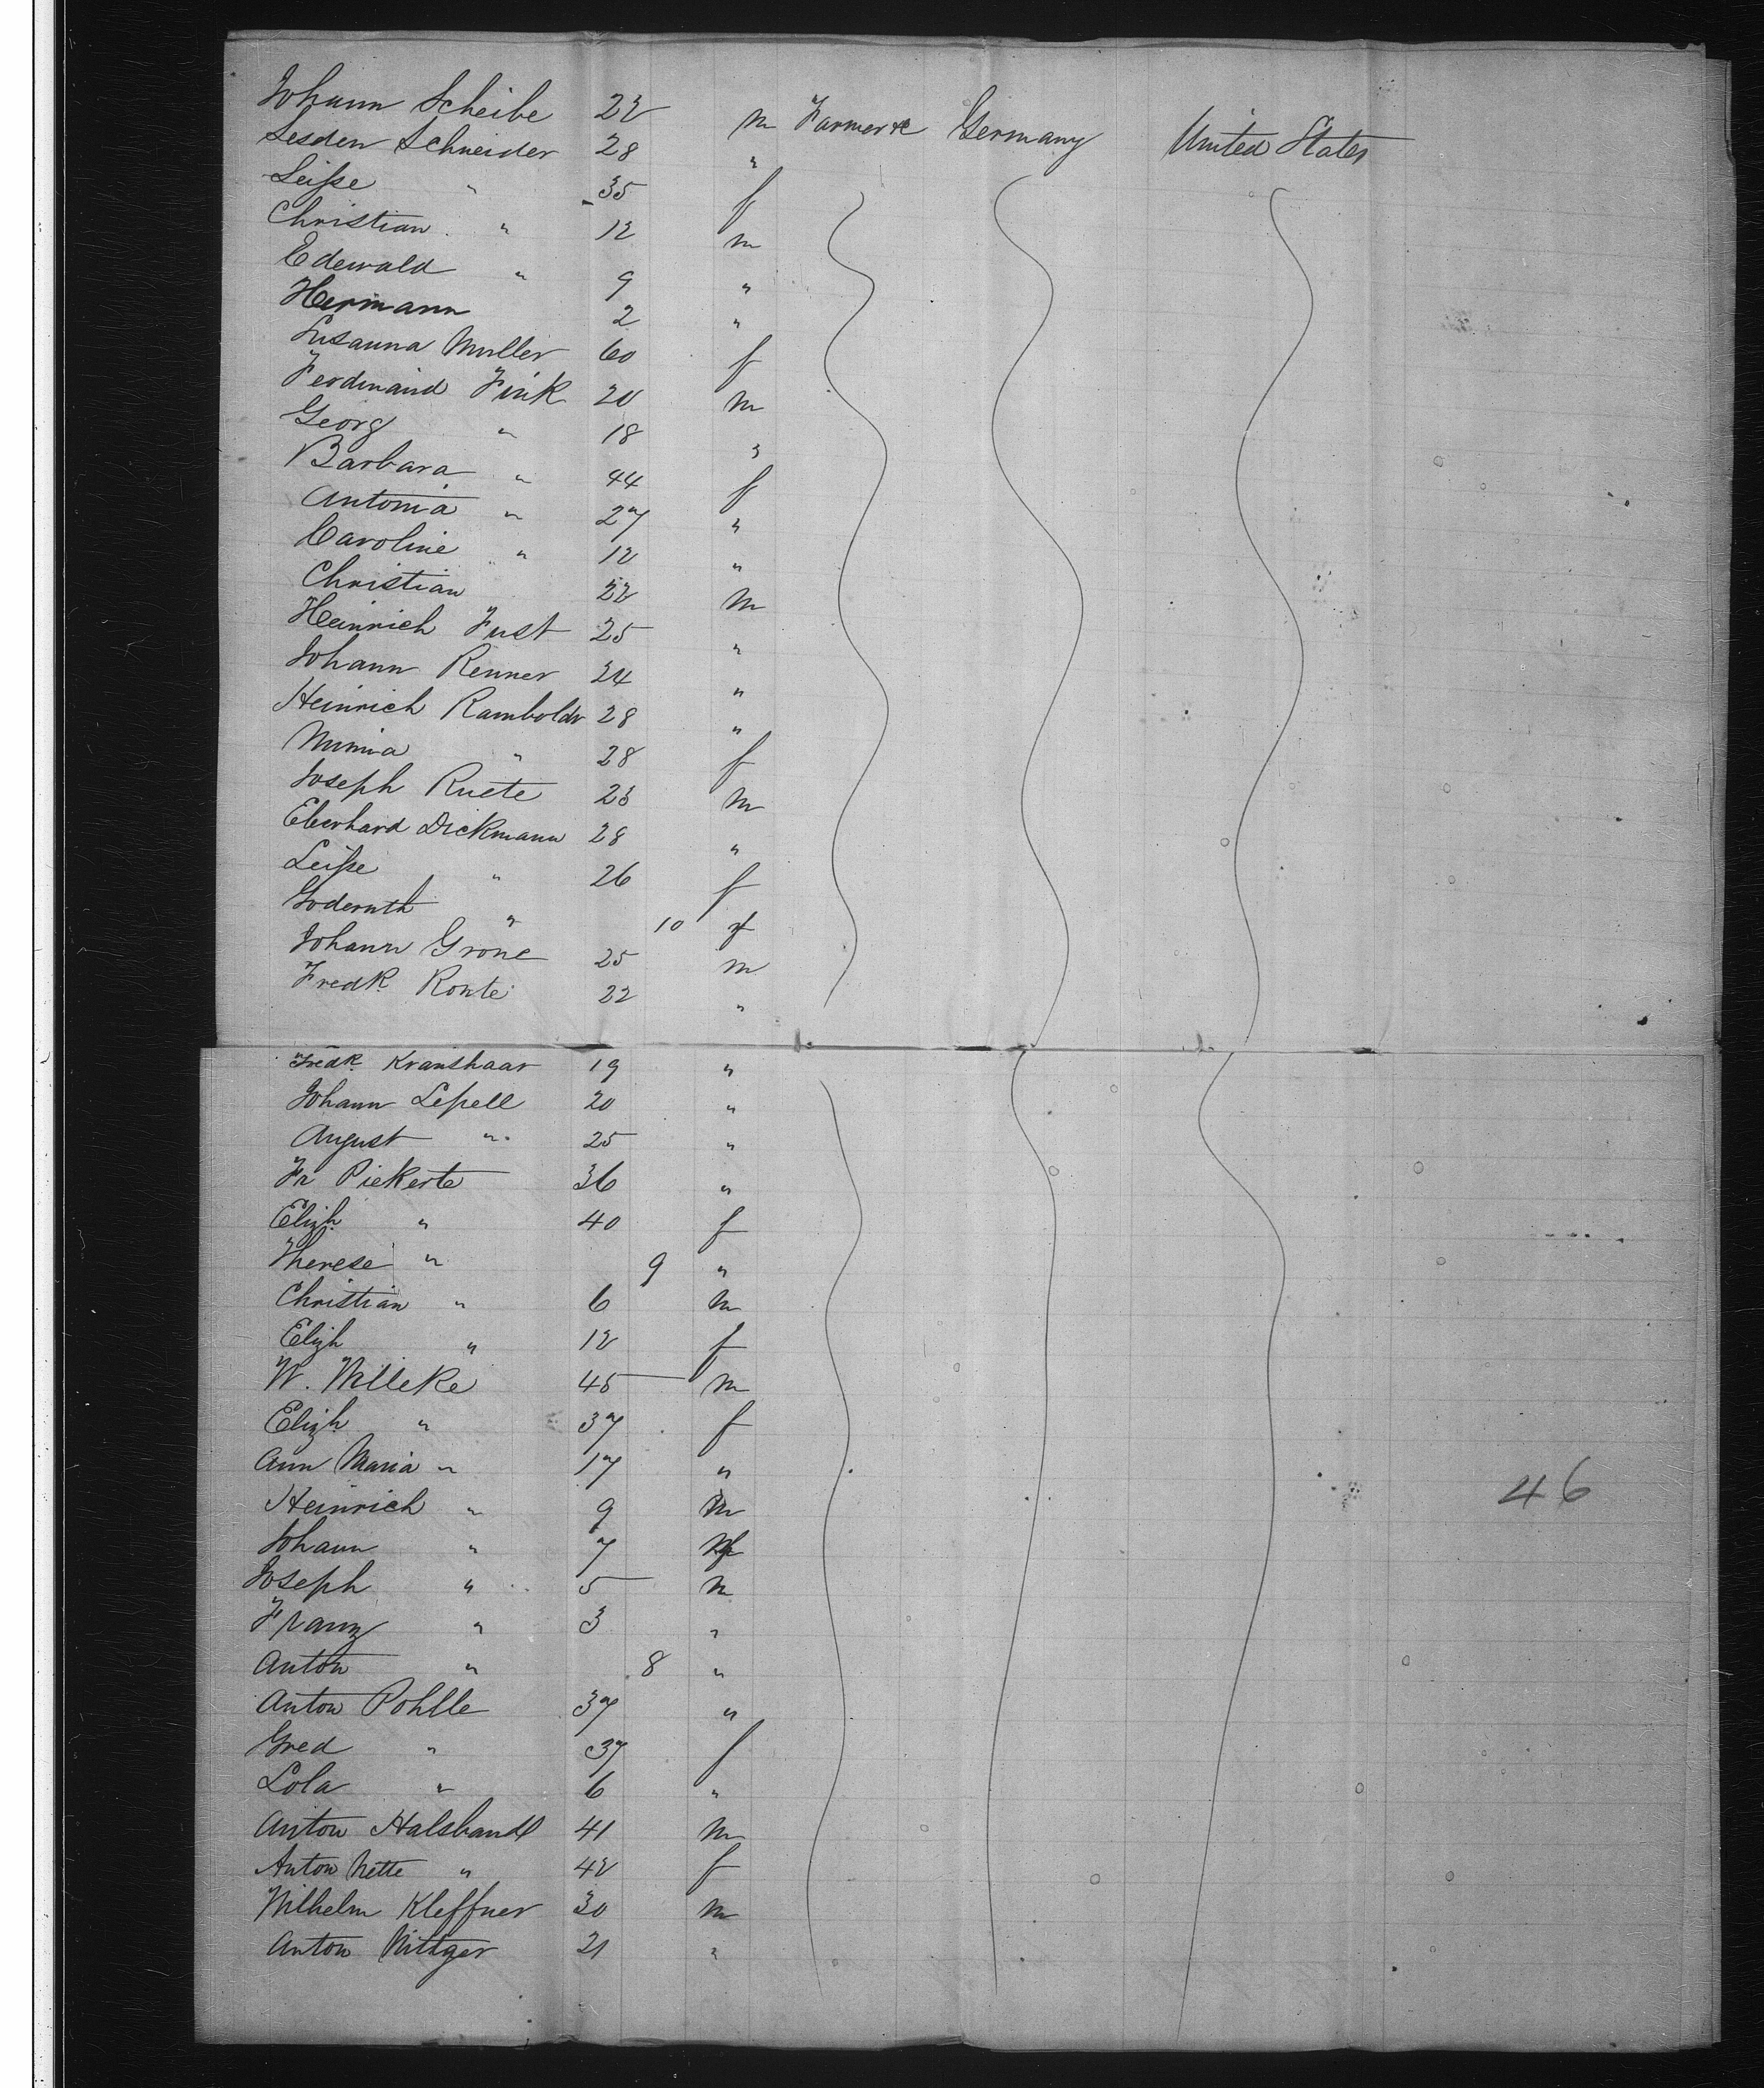 Johann Scheibe 22 m Farmer &c Germany United States
Lesden Schneider 28 "
Leiſse " 35 f
Christian " 12 m
Edewald " 9 "
Hermann 2 "
Susanna Muller 60 f
Ferdinand Fink 20 m
Georg " 18 "
Barbara " 44 f
Antonia " 27 "
Caroline " 12 "
Christian 22 m
Heinrich Fust 25 "
Johann Renner 24 "
Heinrich Ramboldr 28 "
Minna " 28 f
Joseph Ruete 23 m
Eberhard Dickmann 28 "
Leiſse " 26 f
" 10 f
Johann Grone 25 m
Fredk Ronte 22 "
Fredk Kranshaar 19 "
Johann Lepell 20 "
August " 25 "
Fr Piekerte 36 "
Elizh " 40 f
Therese " 9 "
Christian " 6 m
Elizh " 12 f
W. Willeke 45 m
Elizh " 37 f
Ann Maria " 17 "
Heinrich " 9 m
Johann " 7
Joseph " 5 m
Franz " 3 "
Anton " 8 "
Anton Pohlle 37 "
Gred " 37 f
Lola " 6 "
Anton Halsband 41 m
Anton Nette " 42 f
Wilhelm Kleffner 30 m
Anton Nittger 21 "
46